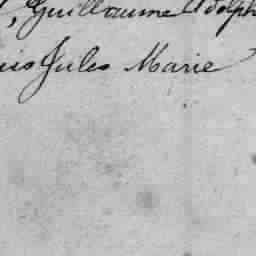 , Guillaume Adolph
uis Jules Marie